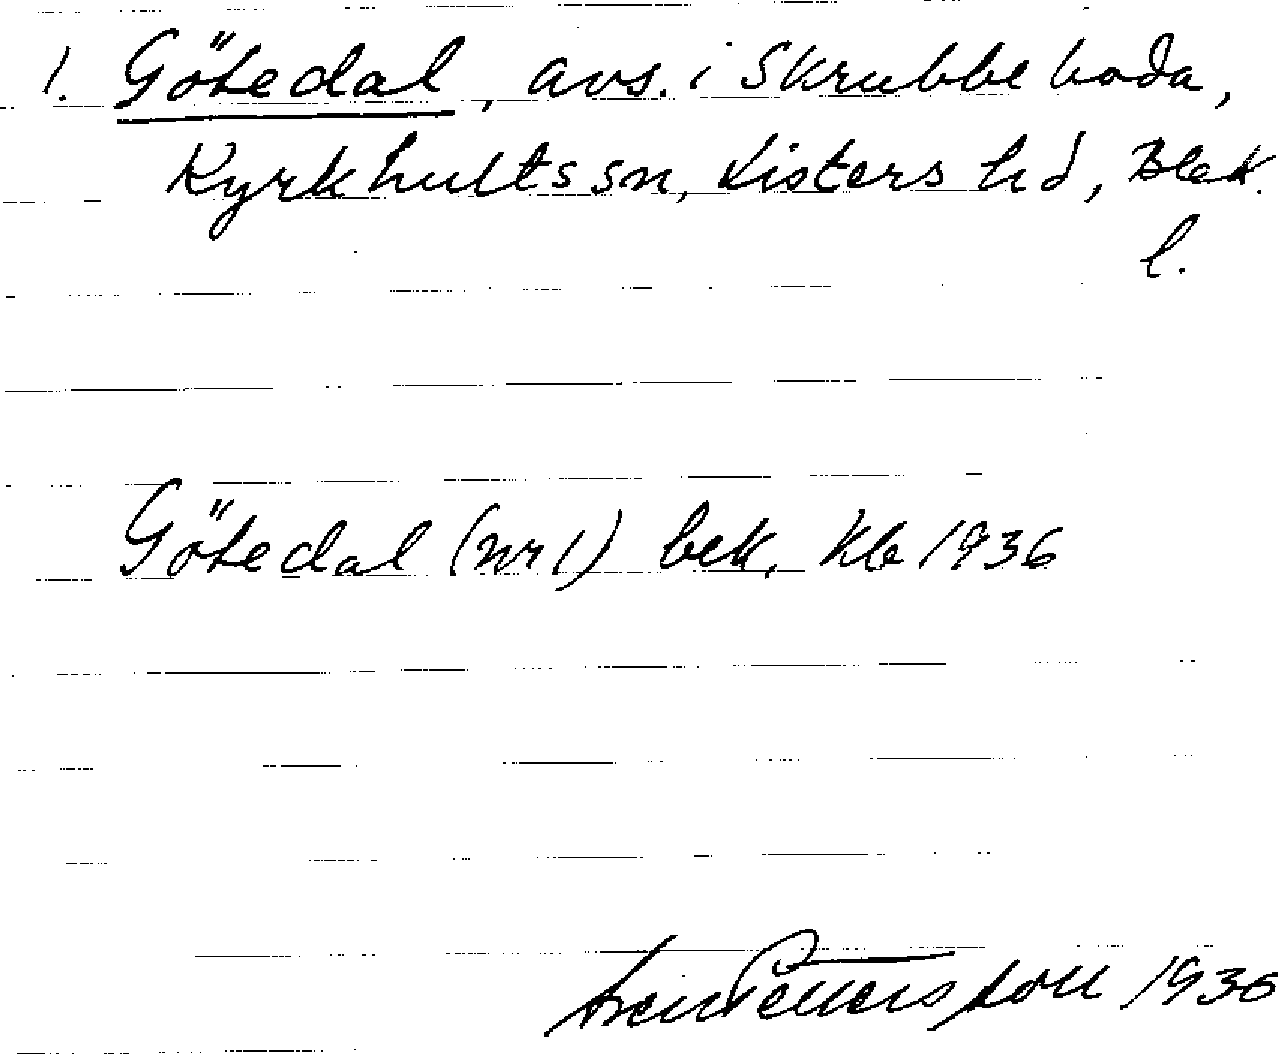 1. Götedal, avs. i Skrubbeboda,
Kyrkhults sn, Listers hd, Blek.
l.
Götedal (nr 1) bek. Kb 1936
Pettersson 1936